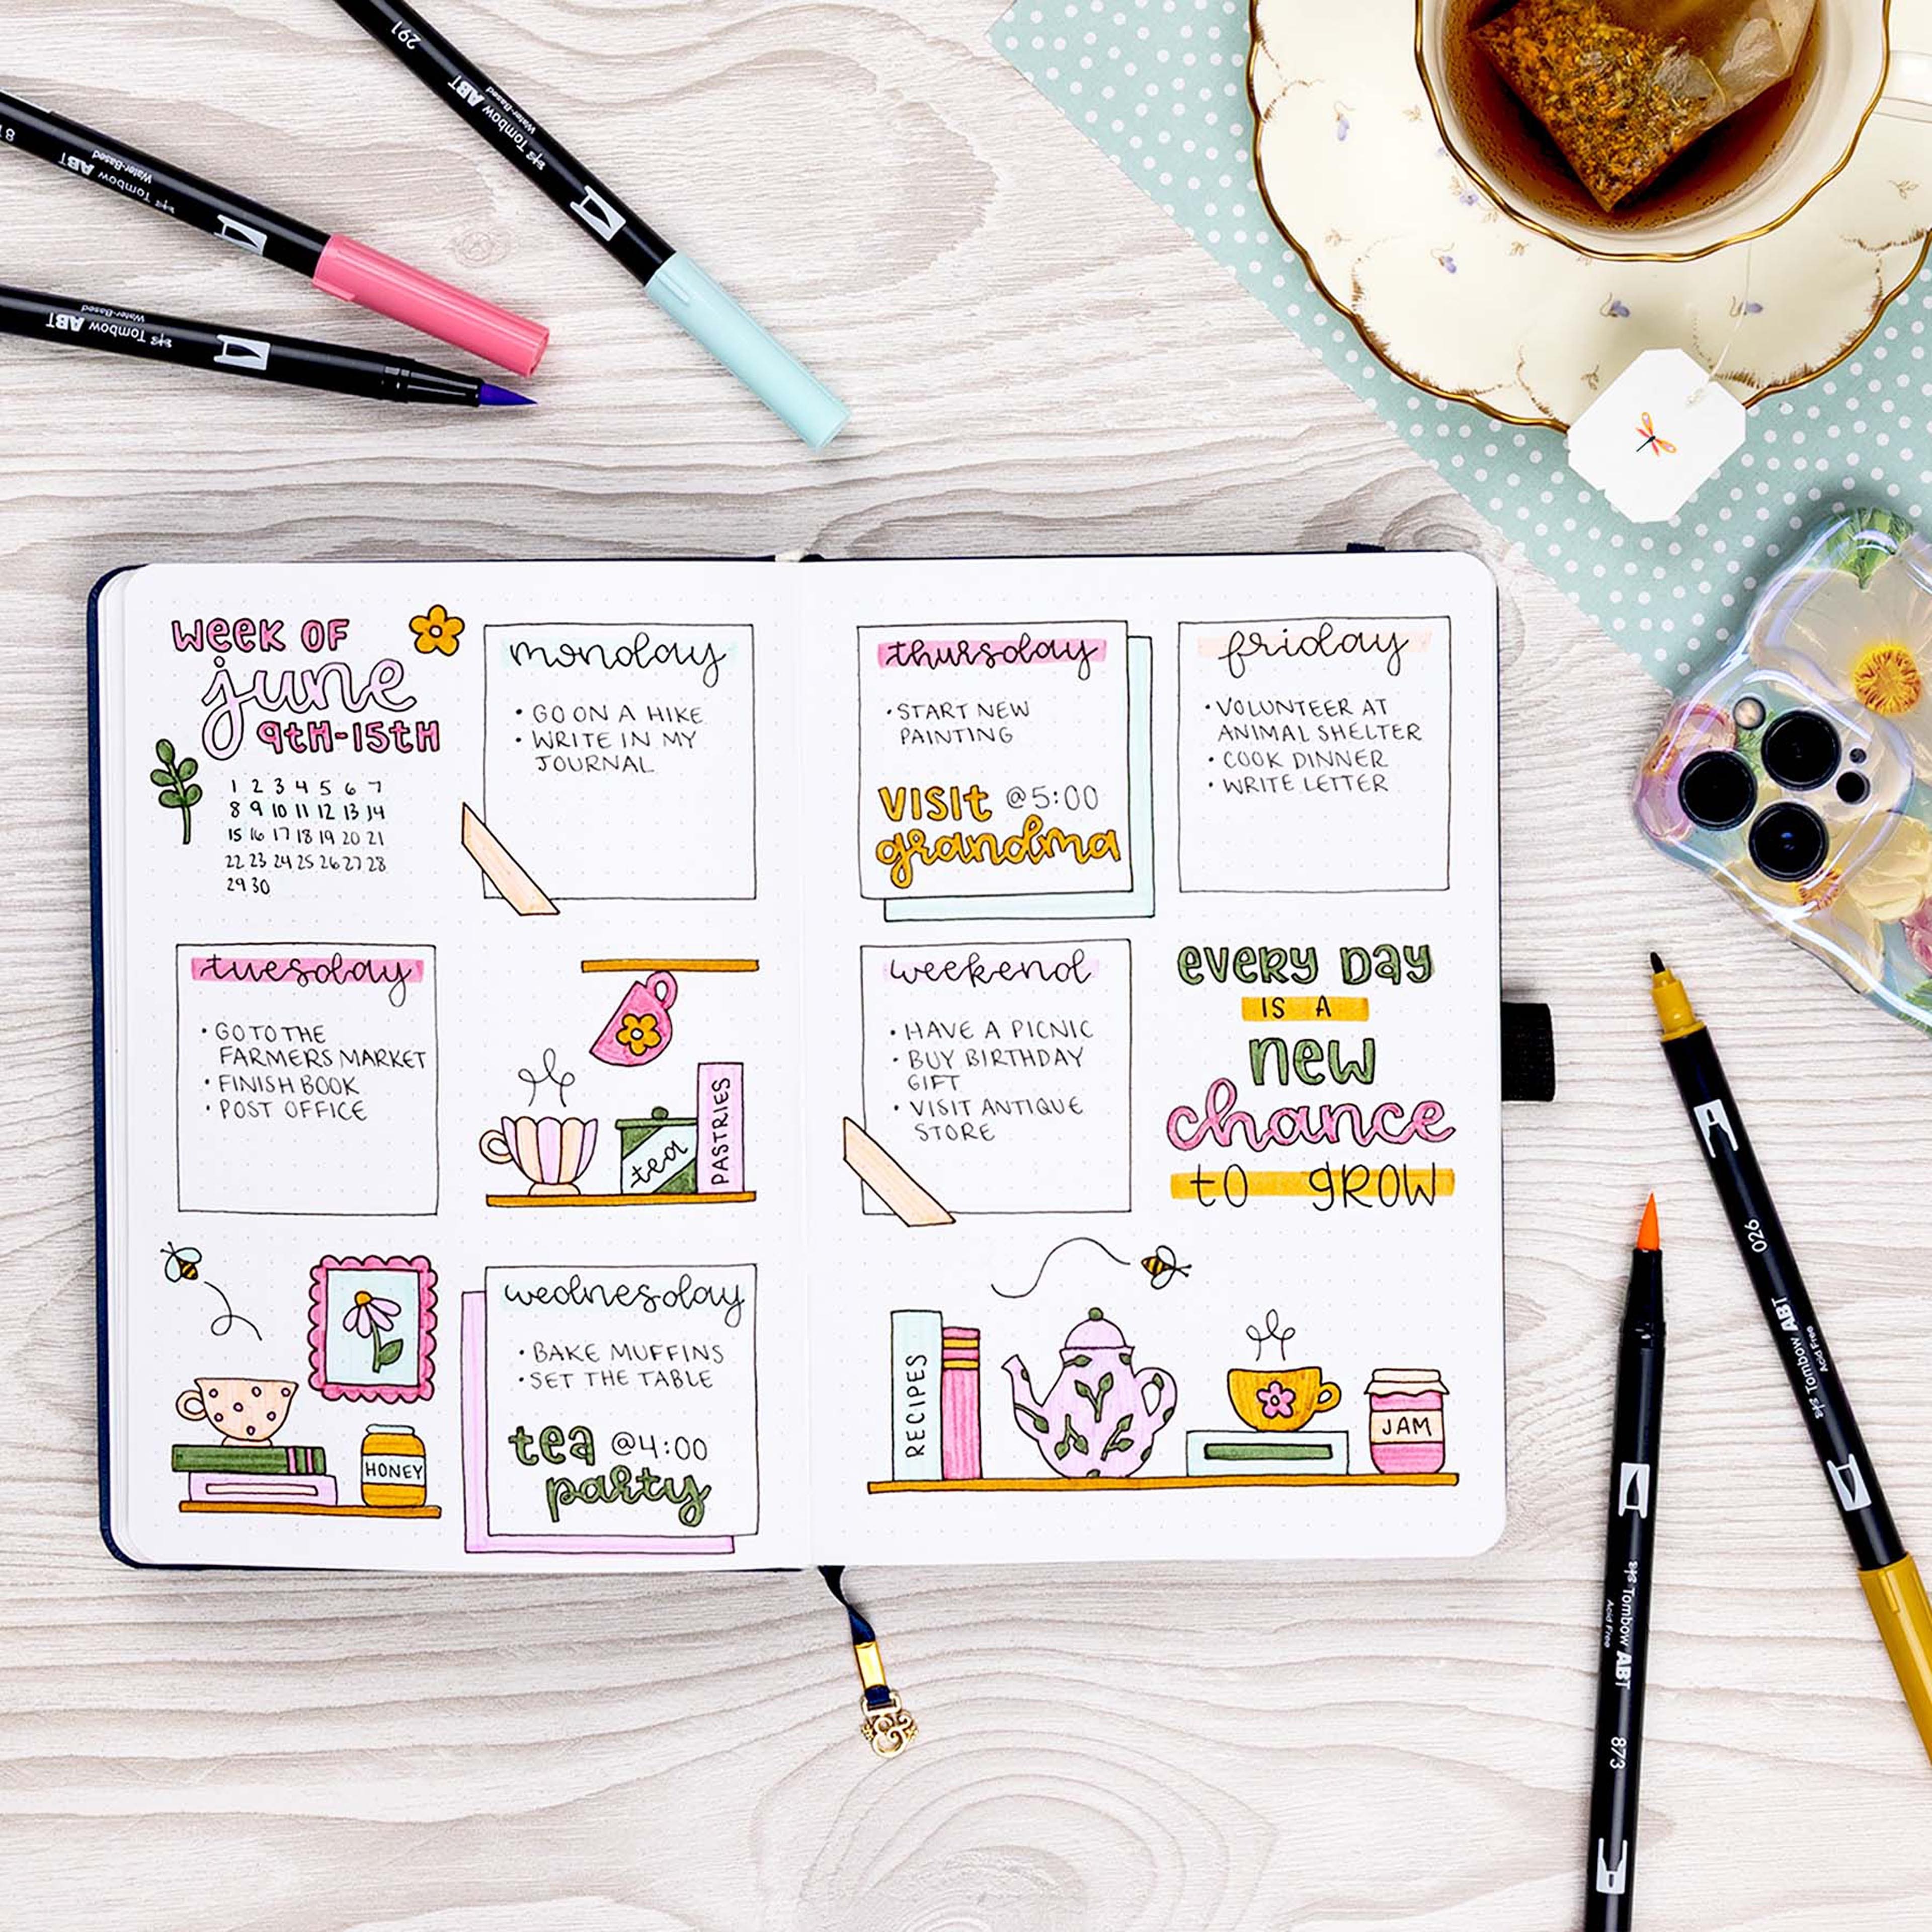 291
Tombow ABT
Water-Based
Tombow ABT
Water-Based
Tombow ABT
Water-Based
WEEK OF
june
9TH-15TH
1 2 3 4 5 6 7
8 9 10 11 12 13 14
15 16 17 18 19 20 21
22 23 24 25 26 27 28
29 30
monday
• GO ON A HIKE
• WRITE IN MY
JOURNAL
tuesday
• GO TO THE
FARMERS MARKET
• FINISH BOOK
• POST OFFICE
tea
PASTRIES
HONEY
wednesday
• BAKE MUFFINS
• SET THE TABLE
tea @4:00
party
thursday
• START NEW
PAINTING
VISIT @5:00
grandma
friday
• VOLUNTEER AT
ANIMAL SHELTER
• COOK DINNER
• WRITE LETTER
weekend
• HAVE A PICNIC
• BUY BIRTHDAY
GIFT
• VISIT ANTIQUE
STORE
EVERY DAY
IS A
NEW
chance
TO GROW
RECIPES
JAM
026
Tombow ABT
Acid Free
Tombow ABT
Acid Free
873